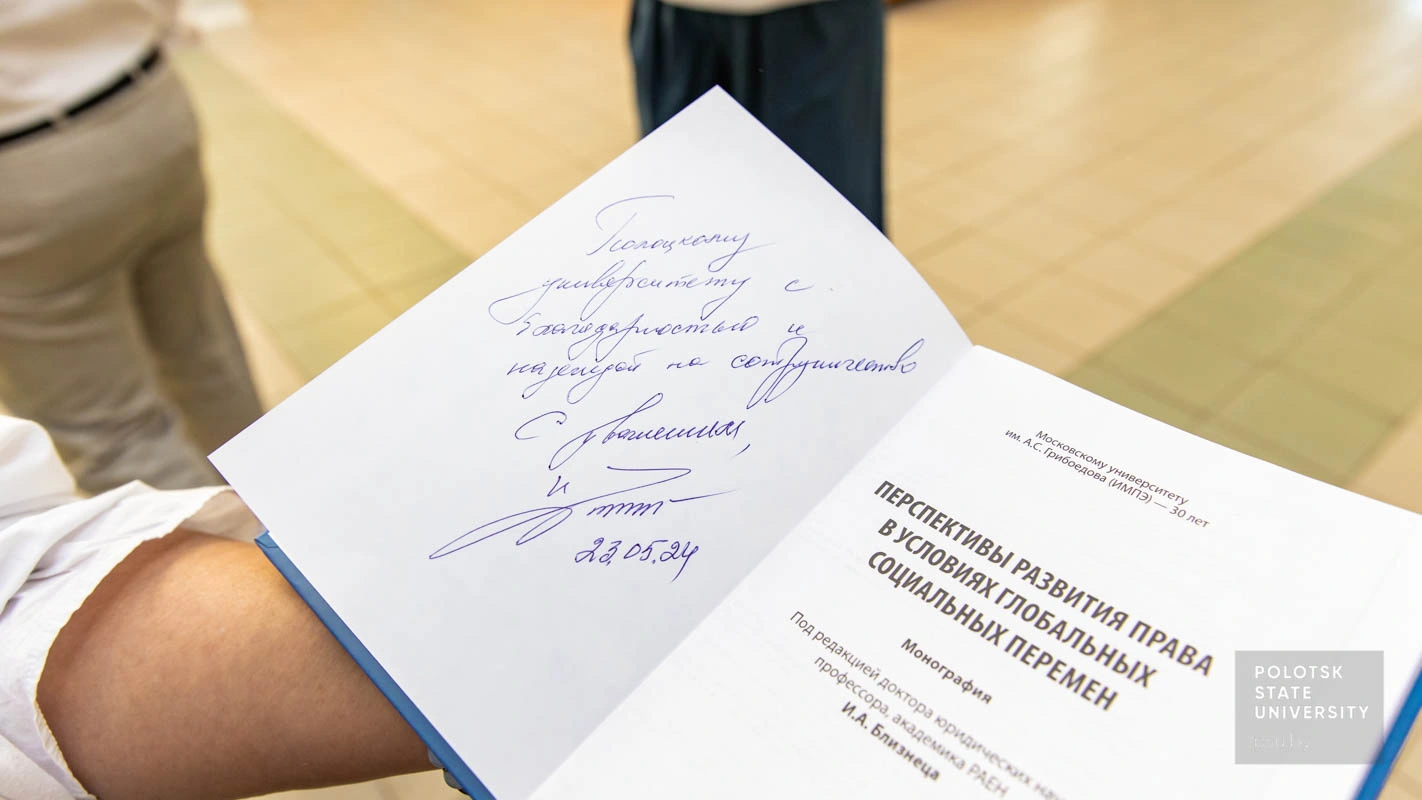 Полоцкому
университету с
благодарностью и
надеждой на сотрудничество
С уважением,
23.05.24
Московскому университету
им. А.С. Грибоедова (ИМПЭ) — 30 лет
ПЕРСПЕКТИВЫ РАЗВИТИЯ ПРАВА
В УСЛОВИЯХ ГЛОБАЛЬНЫХ
СОЦИАЛЬНЫХ ПЕРЕМЕН
Монография
Под редакцией доктора юридических
профессора, академика РАЕН
И.А. Близнеца
POLOTSK
STATE
UNIVERSITY